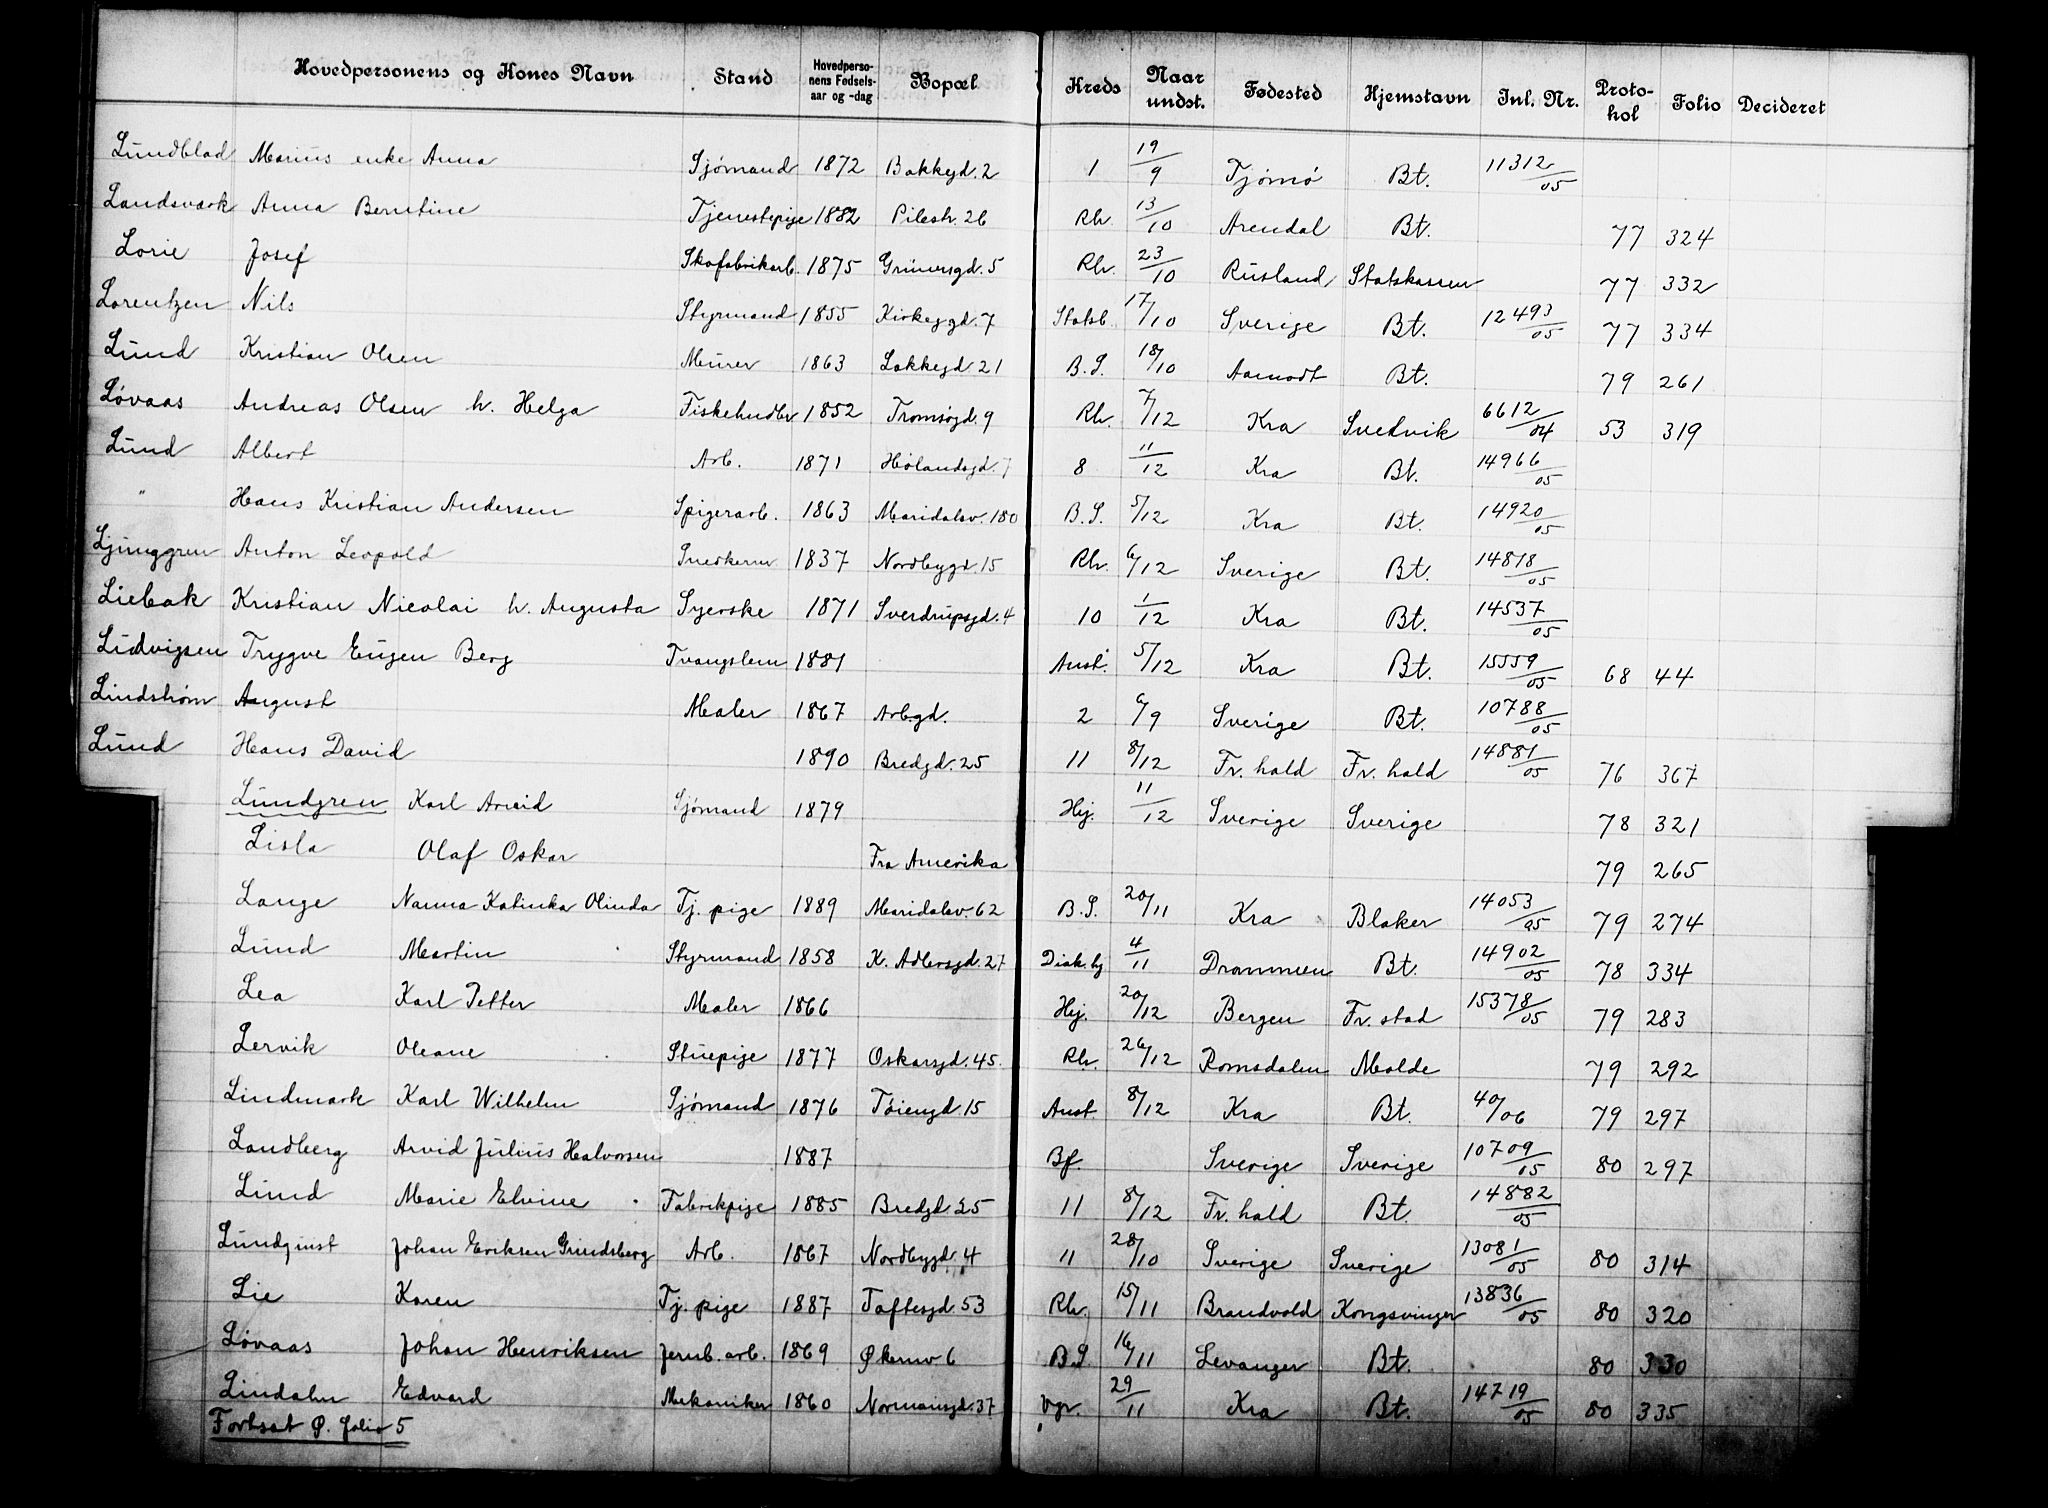 Hovedpersonens og Kones Navn Stand Hovedperso-nens Fødsels-aar og -dag Bopæl Kreds Naar undst. Fødested Hjemstavn Inl. Nr. Proto-kol Folio Decideret
Lundblad Marius enke Anna Sjømand 1872 Bakkegd. 2 1 19/9 Tjømø Bt. 11312/05
Landsvark Anna Berntine Tjenestepige 1882 Pilestr. 26 Rh. 13/10 Arendal Bt. 77 324
Lorie Josef Skofabrikarb. 1875 Grünersgd. 5 Rh. 23/10 Rusland Statskassen 77 332
Lorentzen Nils Styrmand 1855 Kirkeggd. 7 Statsb. 17/10 Sverige Bt. 12493/05 77 334
Lund Kristian Olsen Murer 1863 Lakkegd 21 B.S. 18/10 Aamodt Bt. 79 261
Løvaas Andreas Olsen h. Helga Fiskehndlr 1852 Tromsøgd. 9 Rh. 7/12 Kra Svedvik 6612/04 53 319
Lund Albert Arb. 1871 Hølandsgd. 7 8 11/12 Kra Bt. 14966/05
" Hans Kristian Andersen Spigerarb. 1863 Maridalsv. 180 B.S. 5/12 Kra Bt. 14920/05
Ljunggren Anton Leopold Snedkersv 1837 Nordbygd. 15 Rh. 6/12 Sverige Bt. 14818/05
Liebak Kristian Nicolai h. Augusta Syerske 1871 Sverdrupsgd. 4 10 1/12 Kra Bt. 14537/05
Ludvigsen Trygve Eugen Berg Tvangslem 1881 Anst. 5/12 Kra Bt. 15559/05 68 44
Lindstrøm August Maler 1867 Arbgd. 2 6/9 Sverige Bt. 10788/05
Lund Hans David 1890 Bredgd. 25 11 8/12 Fr. hald Fr. hald 14881/05 76 367
Lundgren Karl Arvid Sjømand 1879 Hej. 11/12 Sverige Sverige 78 321
Lisla Olaf Oskar Fra Amerika 79 265
Lange Nanna Katinka Olinda Tj. pige 1889 Maridalsv. 62 B.S. 20/11 Kra Blaker 14053/05 79 274
Lund Martin Styrmand 1858 K. Adlersgd. 27 Diak. hj 4/11 Drammen Bt. 14902/05 78 334
Lea Karl Petter Maler 1866 Hej. 20/12 Bergen Fr. stad 15378/05 79 283
Lervik Oleane Stuepige 1877 Oskarsgd. 45. Rh. 26/12 Romsdalen Molde 79 292
Lindmark Karl Wilhelm Sjømand 1876 Tøiengd. 15 Anst. 8/12 Kra Bt. 40/06 79 297
Landberg Arvid Julius Halvorsen 1887 Bf. Sverige Sverige 10709/05 80 297
Lund Marie Elvine Fabrikpige 1885 Bredgd. 25 11 8/12 Fr. hald Bt. 14882/05
Lundquist Johan Eriksen Grindsberg Arb. 1867 Nordbygd. 4 11 28/10 Sverige Sverige 13081/05 80 314
Lie Karen Tj. pige 1887 Toftesgd. 53 Rh. 15/11 Brandvold Kongsvinger 13836/05 80 320
Løvaas Johan Henriksen Jernb. arb. 1869 Økernv 6 B.S. 16/11 Levanger Bt. 80 330
Lindalm Edvard Mekaniker 1860 Normansgd. 37 Vgr. 29/11 Kra Bt. 14719/05 80 335
Fortsat Ø. folio 5